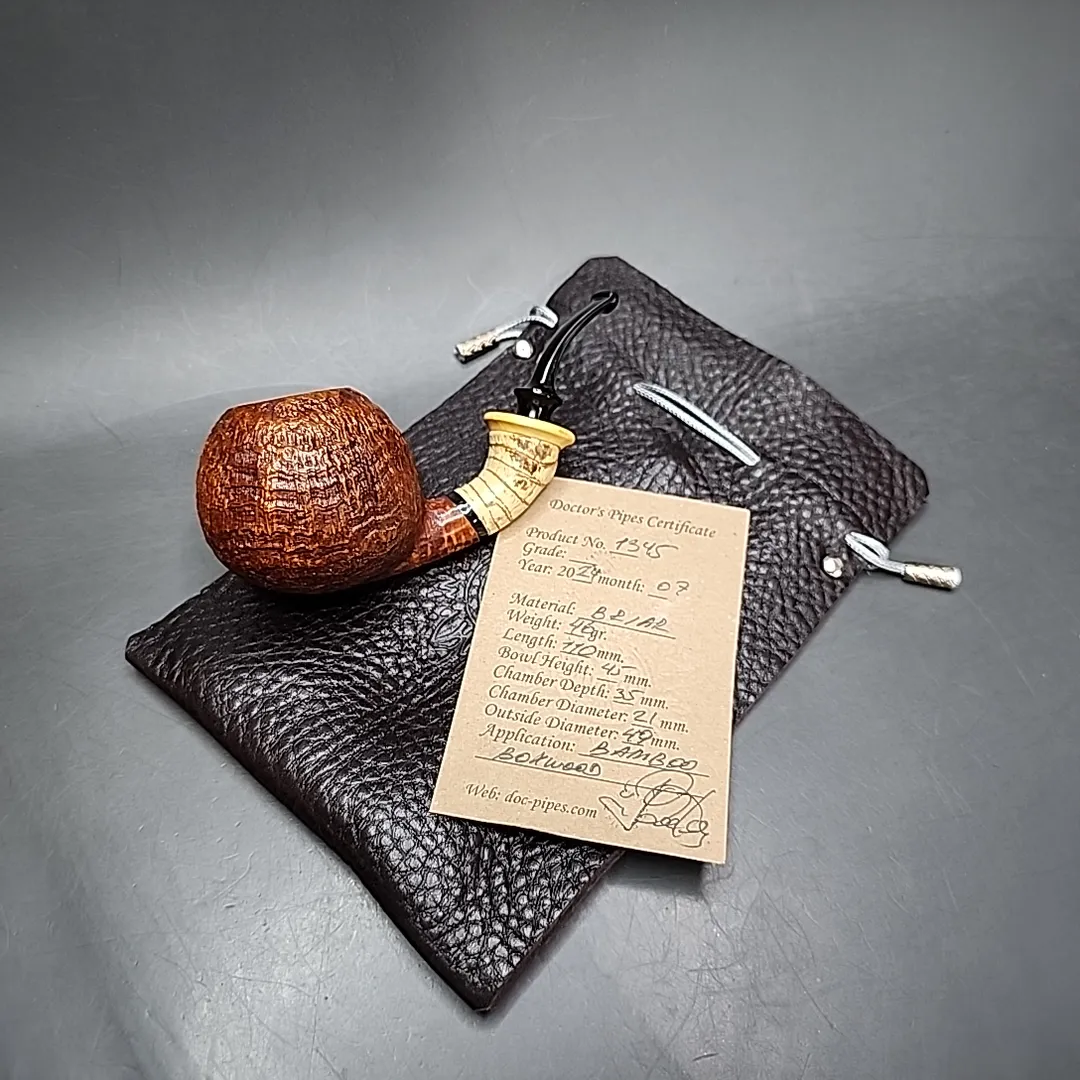 Doctor's Pipes Certificate
Product No. 1345
Grade:
Year: 2024 month: 07
Material: BRIAR
Weight: 46gr.
Length: 110mm.
Bowl Height: 45 mm.
Chamber Depth: 35 mm.
Chamber Diameter: 21 mm.
Outside Diameter: 49mm.
Application: BAMBOO
BOXWOOD
Web: doc-pipes.com